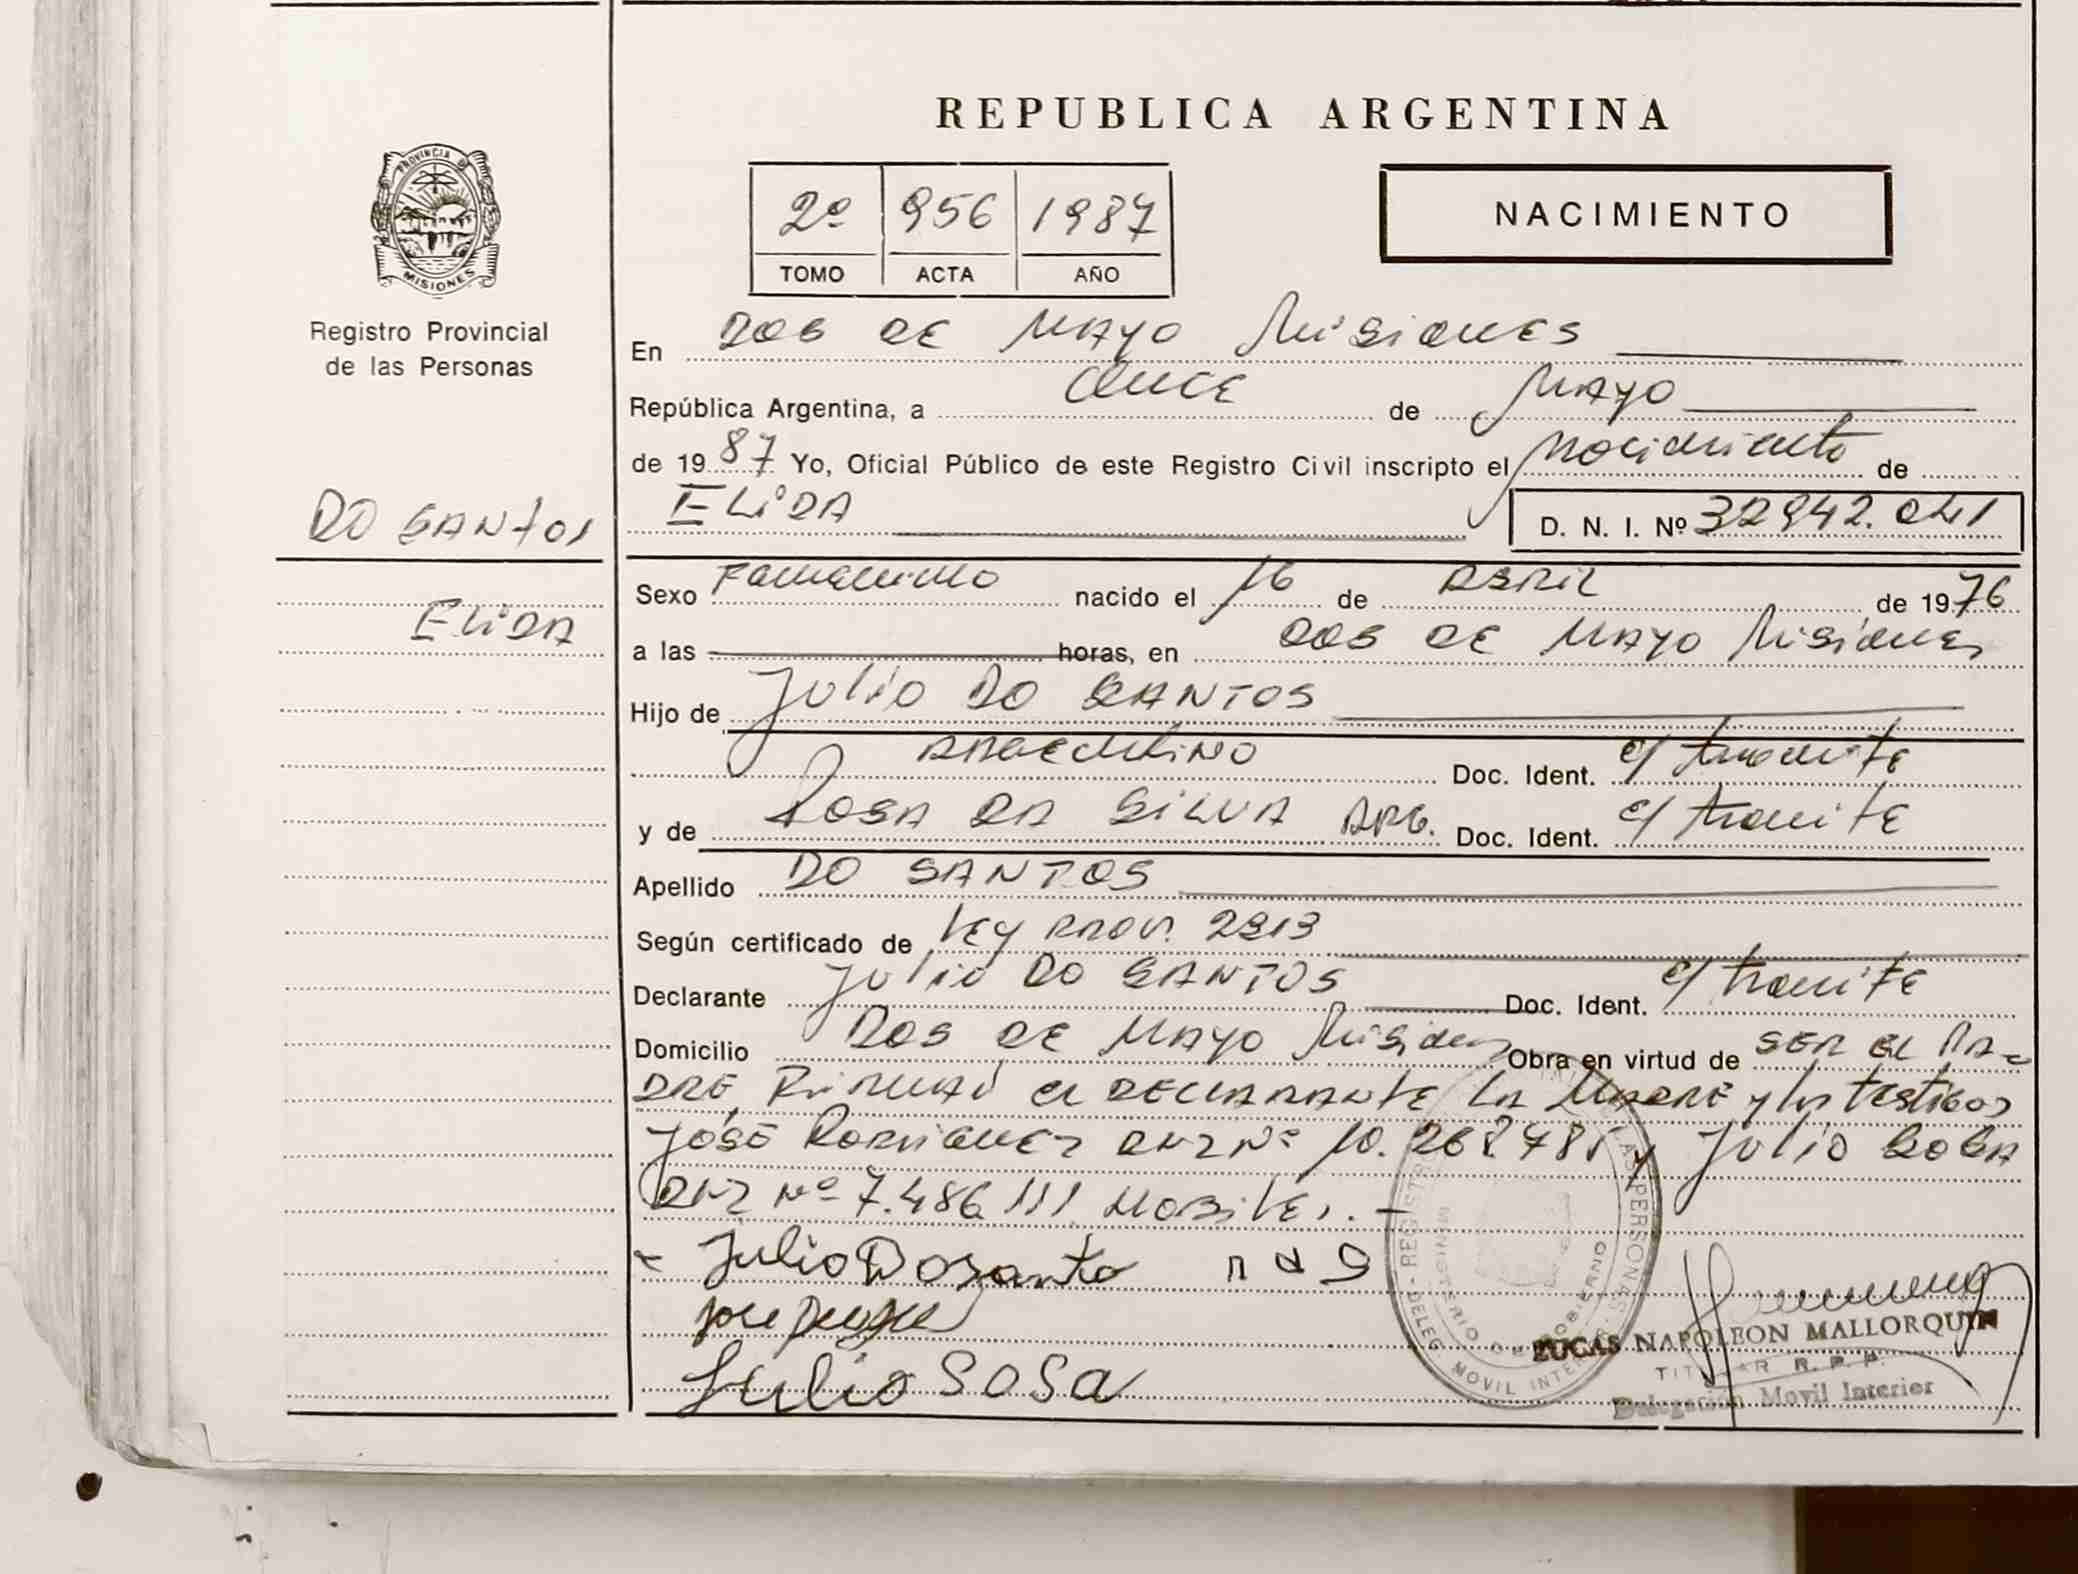 REPUBLICA ARGENTINA
PROVINCIA DE MISIONES
Registro Provincial
de las Personas
2º 956 1987
TOMO ACTA AÑO
NACIMIENTO
En DOS DE MAYO Misiones
República Argentina, a ONCE de MAYO
de 1987 Yo, Oficial Público de este Registro Civil inscripto el nacimiento de
ELIDA D. N. I. Nº 32942.041
DO SANTOS
ELIDA
Sexo Femenino nacido el 16 de ABRIL de 1976
a las horas, en DOS DE MAYO Misiones
Hijo de Julio DO SANTOS
ARGENTINO Doc. Ident. e/ tramite
y de ROSA DA SILVA ARG. Doc. Ident. e/ tramite
Apellido DO SANTOS
Según certificado de Ley PROV. 2313
Declarante Julio DO SANTOS Doc. Ident. e/ tramite
Domicilio DOS DE MAYO Misiones Obra en virtud de SER EL PA-
DRE FIRMAN el DECLARANTE LA MADRE y los testigos
JOSÉ RODRIGUEZ DNI Nº 10.268.785 y Julio SOSA
DNI Nº 7.486.111
Julio Dosanto
Julio SOSA
LUCAS NAPOLEON MALLORQUIN
TITULAR R. P. P.
Delegación Movil Interior